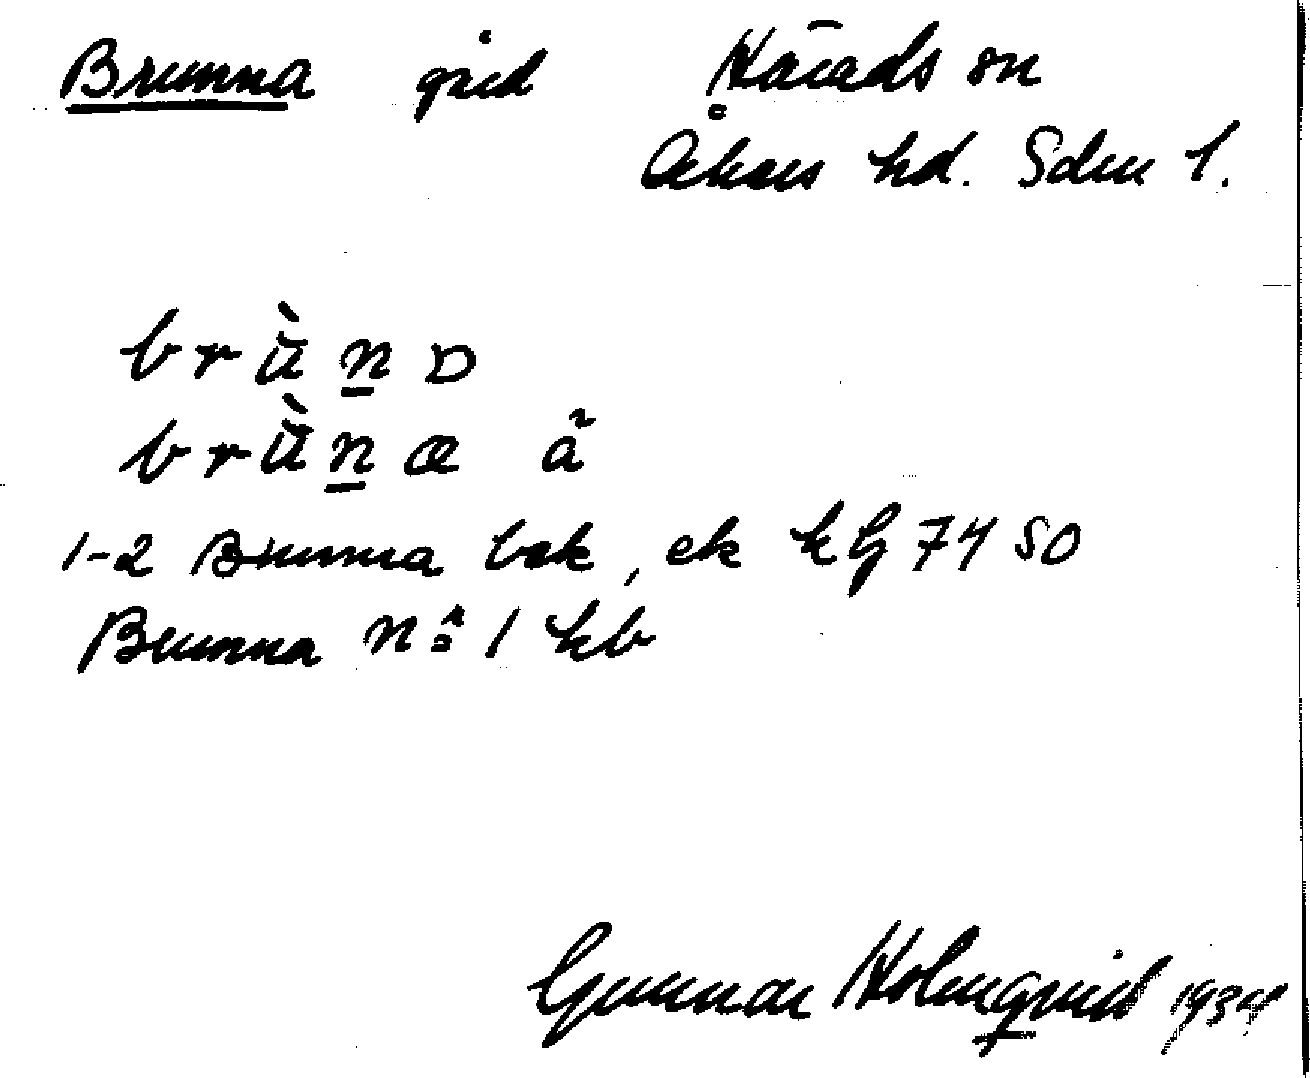 Brunna grd Härads sn
Åkers hd. Sdm l.
brùn̲ɒ
brùn̲a ã
1-2 Brunna bak, ek kG 7450
Brunna nº 1 kb
Gunnar Holmqvist 1934